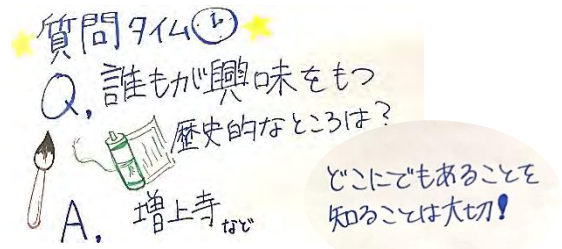 質問タイム
Q. 誰もが興味をもつ
歴史的なところは？
A. 増上寺など
どこにでもあることを
知ることは大切！